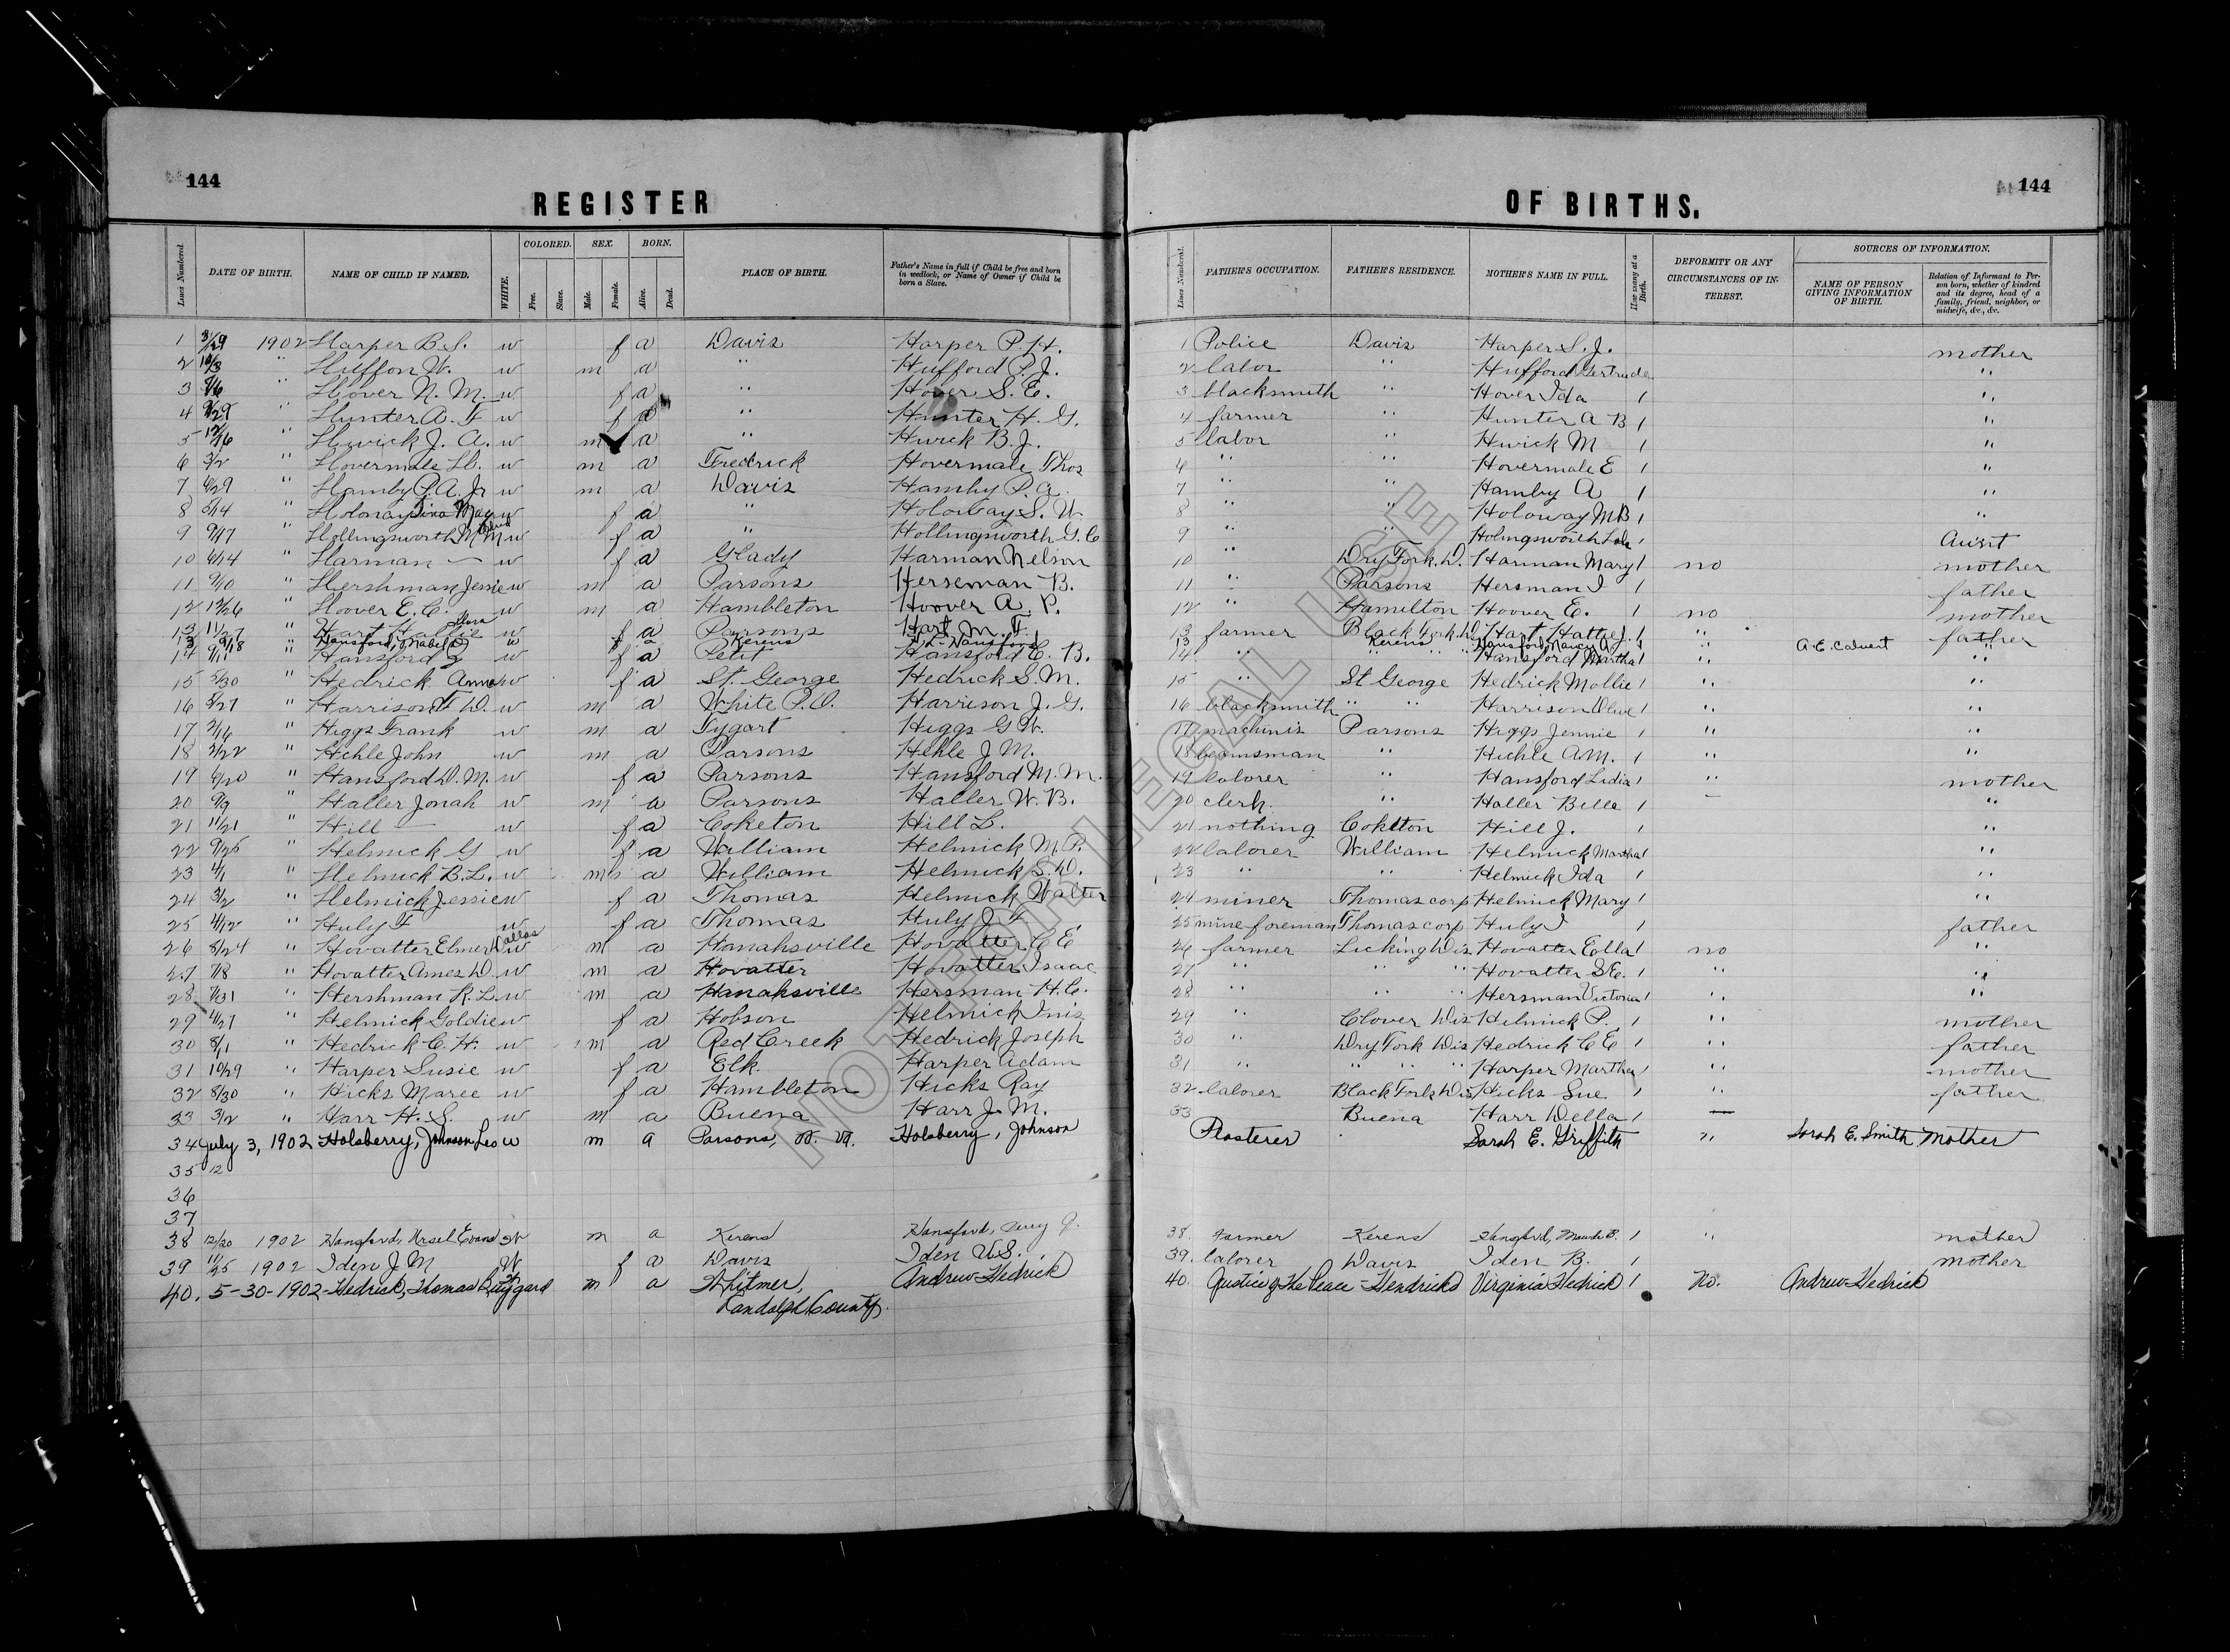 144
144
REGISTER
OF BIRTHS.
Lines Numbered. DATE OF BIRTH. NAME OF CHILD IF NAMED. WHITE. COLORED. Free. Slave. SEX. Male. Female. BORN. Alive. Dead. PLACE OF BIRTH. Father's Name in full if Child be free and born in wedlock, or Name of Owner if Child be born a Slave.
Lines Numbered. FATHER'S OCCUPATION. FATHER'S RESIDENCE. MOTHER'S NAME IN FULL. How many at a Birth. DEFORMITY OR ANY CIRCUMSTANCES OF INTEREST. SOURCES OF INFORMATION. NAME OF PERSON GIVING INFORMATION OF BIRTH. Relation of Informant to Person born, whether of kindred and its degree, head of a family, friend, neighbor, or midwife, &c., &c.
1 3/29 1902 Harper B.S. w f a Davis Harper P.H. 1 Police Davis Harper S.J. mother
2 10/3 " Huffon W. w m a " Hufford P.J. 2 labor " Hufford Gertrude "
3 " Hover N.M. w f a " Hover S.E. 3 blacksmith " Hover Ida 1 "
4 " Hunter A.F. w f a " Hunter H.G. 4 farmer " Hunter A B 1 "
5 12/16 " Hwick J.A. w m a " Hwick B.J. 5 labor " Hwick M 1 "
6 3/2 " Hovermale w m a Fredrick Hovermale Thos 6 " " Hovermale E 1 "
7 6/29 " Hamby P.A. Jr w m a Davis Hamby P.A. 7 " " Hamby A 1 "
8 " Holoway Tina May w f a " Holoway S.W. 8 " " Holoway M B 1 "
9 9/17 " Hollingsworth w f a " Hollingsworth G.C 9 " " Holingsworth 1 Aunt
10 6/14 " Harman — w f a Glady Harman Nelson 10 " Dry Fork D. Harman Mary 1 no mother
11 9/10 " Hershman Jessie w m a Parsons Herseman B. 11 " Parsons Hersman I 1 father
12 12/26 " Hoover E.C. w m a Hambleton Hoover A.P. 12 " Hamilton Hoover E. 1 no mother
13 11/27 " Hart Hattie Flora w f a Parsons Hart M.F. 13 farmer Black Fork D. Hart Hattie J. 1 " father
13 9/18 " Hansford, Mabel w f a Kerens Hansford 13 " Kerens Hansford, Nancy A 1 " A.E. Calvert "
14 9/11 " Hansford w f a Petit Hansford E.B. 14 " " Hansford Martha 1 " "
15 5/30 " Hedrick Anna w f a St. George Hedrick S.M. 15 " St George Hedrick Mollie 1 " "
16 5/27 " Harrison F D. w m a White P.O. Harrison J.G. 16 blacksmith " " Harrison Olive 1 " "
17 2/16 " Higgs Frank w m a Tygart Higgs G W. 17 machinis Parsons Higgs Jennie 1 " "
18 3/22 " Hehle John w m a Parsons Hehle J M. 18 beamsman " Hickle A.M. 1 " "
19 6/20 " Hansford D.M. w f a Parsons Hansford M.M. 19 laborer " Hansford Lidia 1 " mother
20 9/9 " Haller Jonah w m a Parsons Haller W.B. 20 clerk. " Haller Belle 1 — "
21 11/21 " Hill — w f a Coketon Hill L. 21 nothing Cokton Hill J. 1 "
22 9/25 " Helmick G w f a William Helmick M.P. 22 laborer William Helmick Martha 1 "
23 " Helmick B.L. w m a William Helmick S.D. 23 " " Helmick Ida 1 "
24 3/2 " Helmick Jessie w f a Thomas Helmick Walter 24 miner Thomas corp Helmick Mary 1 "
25 4/12 " Huly F w f a Thomas Huly J.F. 25 mine foreman Thomas corp Huly I 1 father
26 8/24 " Hovatter Elmer Dallas w m a Hanahsville Hovatter C E 26 farmer Licking Dis Hovatter Ella 1 no "
27 7/8 " Hovatter Ames D. w m a Hovatter Hovatter Isaac 27 " " " Hovatter S.E. 1 " "
28 7/31 " Hershman R.L. w m a Hanahsville Hersman H.C. 28 " " " Hersman Victoria 1 " "
29 4/27 " Helmick Goldie w f a Hobson Helmick Inis 29 " Clover Dis Helmick P. 1 " mother
30 8/1 " Hedrick C.H. w m a Red Creek Hedrick Joseph 30 " Dry Fork Dis Hedrick C E 1 " father
31 10/29 " Harper Susie w f a Elk. Harper Adam 31 " " " " Harper Martha 1 " mother
32 8/30 " Hicks Maree w f a Hambleton Hicks Ray 32 laborer Black Fork Dis Hicks Sue 1 " father
33 3/2 " Harr H.S. w m a Buena Harr J.M. 33 Buena Harr Della 1 —
34 July 3, 1902 Holsberry, Johnson Leo w m a Parsons, W. Va. Holsberry, Johnson Plasterer Sarah E. Griffith " Sarah E. Smith Mother
35 12
36
37
38 12/20 1902 Hansford, Ursel Evans W m a Kerens Hansford, 38. Farmer Kerens Hansford, 1 " mother
39 11/25 1902 Iden J M W f a Davis Iden U.S. 39. laborer Davis Iden B. 1 mother
40. 5-30-1902- Hedrick, Thomas m a Whitmer, Andrew Hedrick 40. Justice of The Peace - Hendricks Virginia Hedrick 1 No. Andrew Hedrick
Randolph County.
NOT FOR LEGAL USE